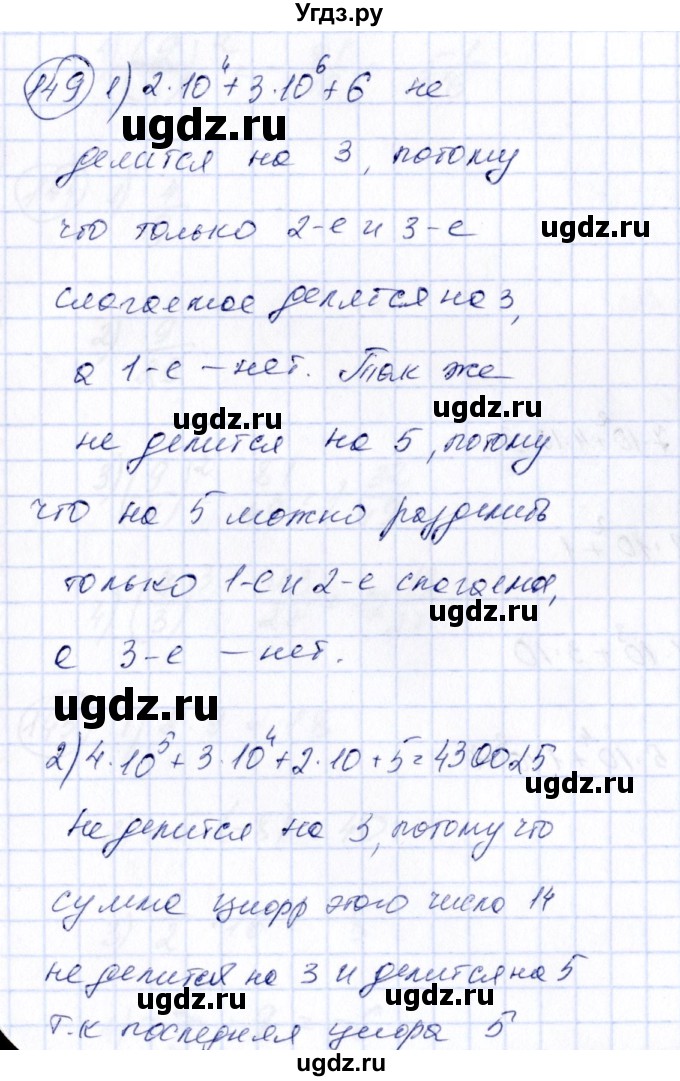 Угдз.ру
149 1) 2·10⁴+3·10⁶+6 не
ugdz.ru
делится на 3, потому
что только 2-е и 3-е
ugdz.ru
слагаемое делятся на 3,
а 1-е – нет. Так же
ugdz.ru ugdz.ru
не делится на 5, потому
что на 5 можно разделить
только 1-е и 2-е слагаемые,
ugdz.ru
а 3-е – нет.
ugdz.ru
2) 4·10⁵+3·10⁴+2·10+5=430025
ugdz.ru
Не делится на 3, потому что
сумма цифр этого число 14
не делится на 3 и делится на 5
ugdz.ru ugdz.ru
Т.к последняя цифра 5
ugdz.ru